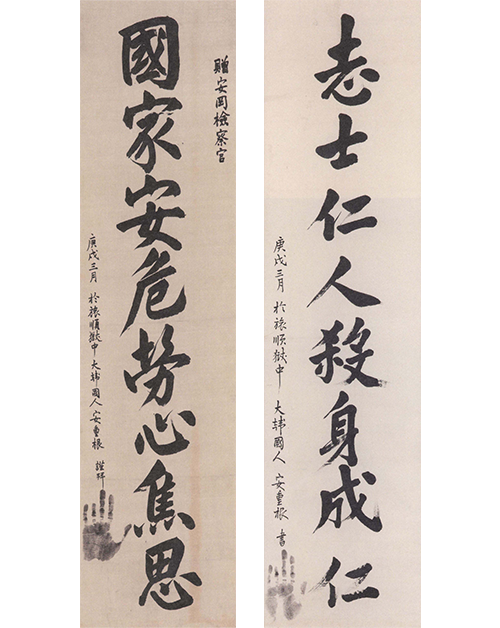 贈安岡檢察官
國家安危勞心焦思
庚戌三月 於旅順獄中 大韓國人 安重根 謹拜
志士仁人殺身成仁
庚戌三月 於旅順獄中 大韓國人 安重根 書